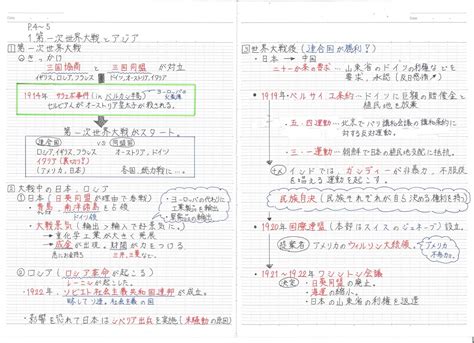 P.4～5
1.第一次世界大戦とアジア
①第一次世界大戦
◎きっかけ
三国協商 と 三国同盟 が対立
イギリス、ロシア、フランス ドイツ、オーストリア、イタリア
1914年 サラエボ事件(inバルカン半島)
ヨーロッパの火薬庫
セルビア人がオーストリア皇太子が殺される。
第一次世界大戦がスタート。
連合国 VS 同盟国
ロシア、イギリス、フランス オーストリア、ドイツ
イタリア(裏切り!)
(アメリカ、日本) 各国、総力戦に…
②大戦中の日本、ロシア
①日本(日英同盟が理由で参戦)
・青島、南洋諸島を占領
ドイツ領
・大戦景気(輸出>輸入で好景気に。)
→重化学工業が大きく発展
→成金が出現。財閥が力をつける
にわかにお金持ちになる 三井、三菱など…
・ヨーロッパの代わりに製品を輸出
②ロシア(ロシア革命が起こる)
レーニンが起こした。
1922年、ソビエト社会主義共和国連邦が成立
略してソ連。社会主義の国。
影響を恐れて日本はシベリア出兵を実施(米騒動の原因)
③世界大戦後(連合国が勝利!)
・日本→中国
二十一か条の要求…山東省のドイツの利権などを
要求、承認(反発は強い)
・1919年・ベルサイユ条約…ドイツに巨額の賠償金と
植民地を放棄
・五・四運動…北京でパリ講和会議の講和条約に
対する反対運動。
・三・一運動…朝鮮で日本の植民地支配に反抗。
インドでは、ガンディーが非暴力、不服従
を唱える運動を起こす。
民族自決(民族それぞれが自ら決める権利を持つ)
・1920年 国際連盟(本部はスイスのジュネーブ)
提案者 アメリカのウィルソン大統領
アメリカ不参加
・1921～1922年 ワシントン会議
決定 ・日英同盟の廃止。
・海軍の縮小。
・日本の山東省の利権を返還。